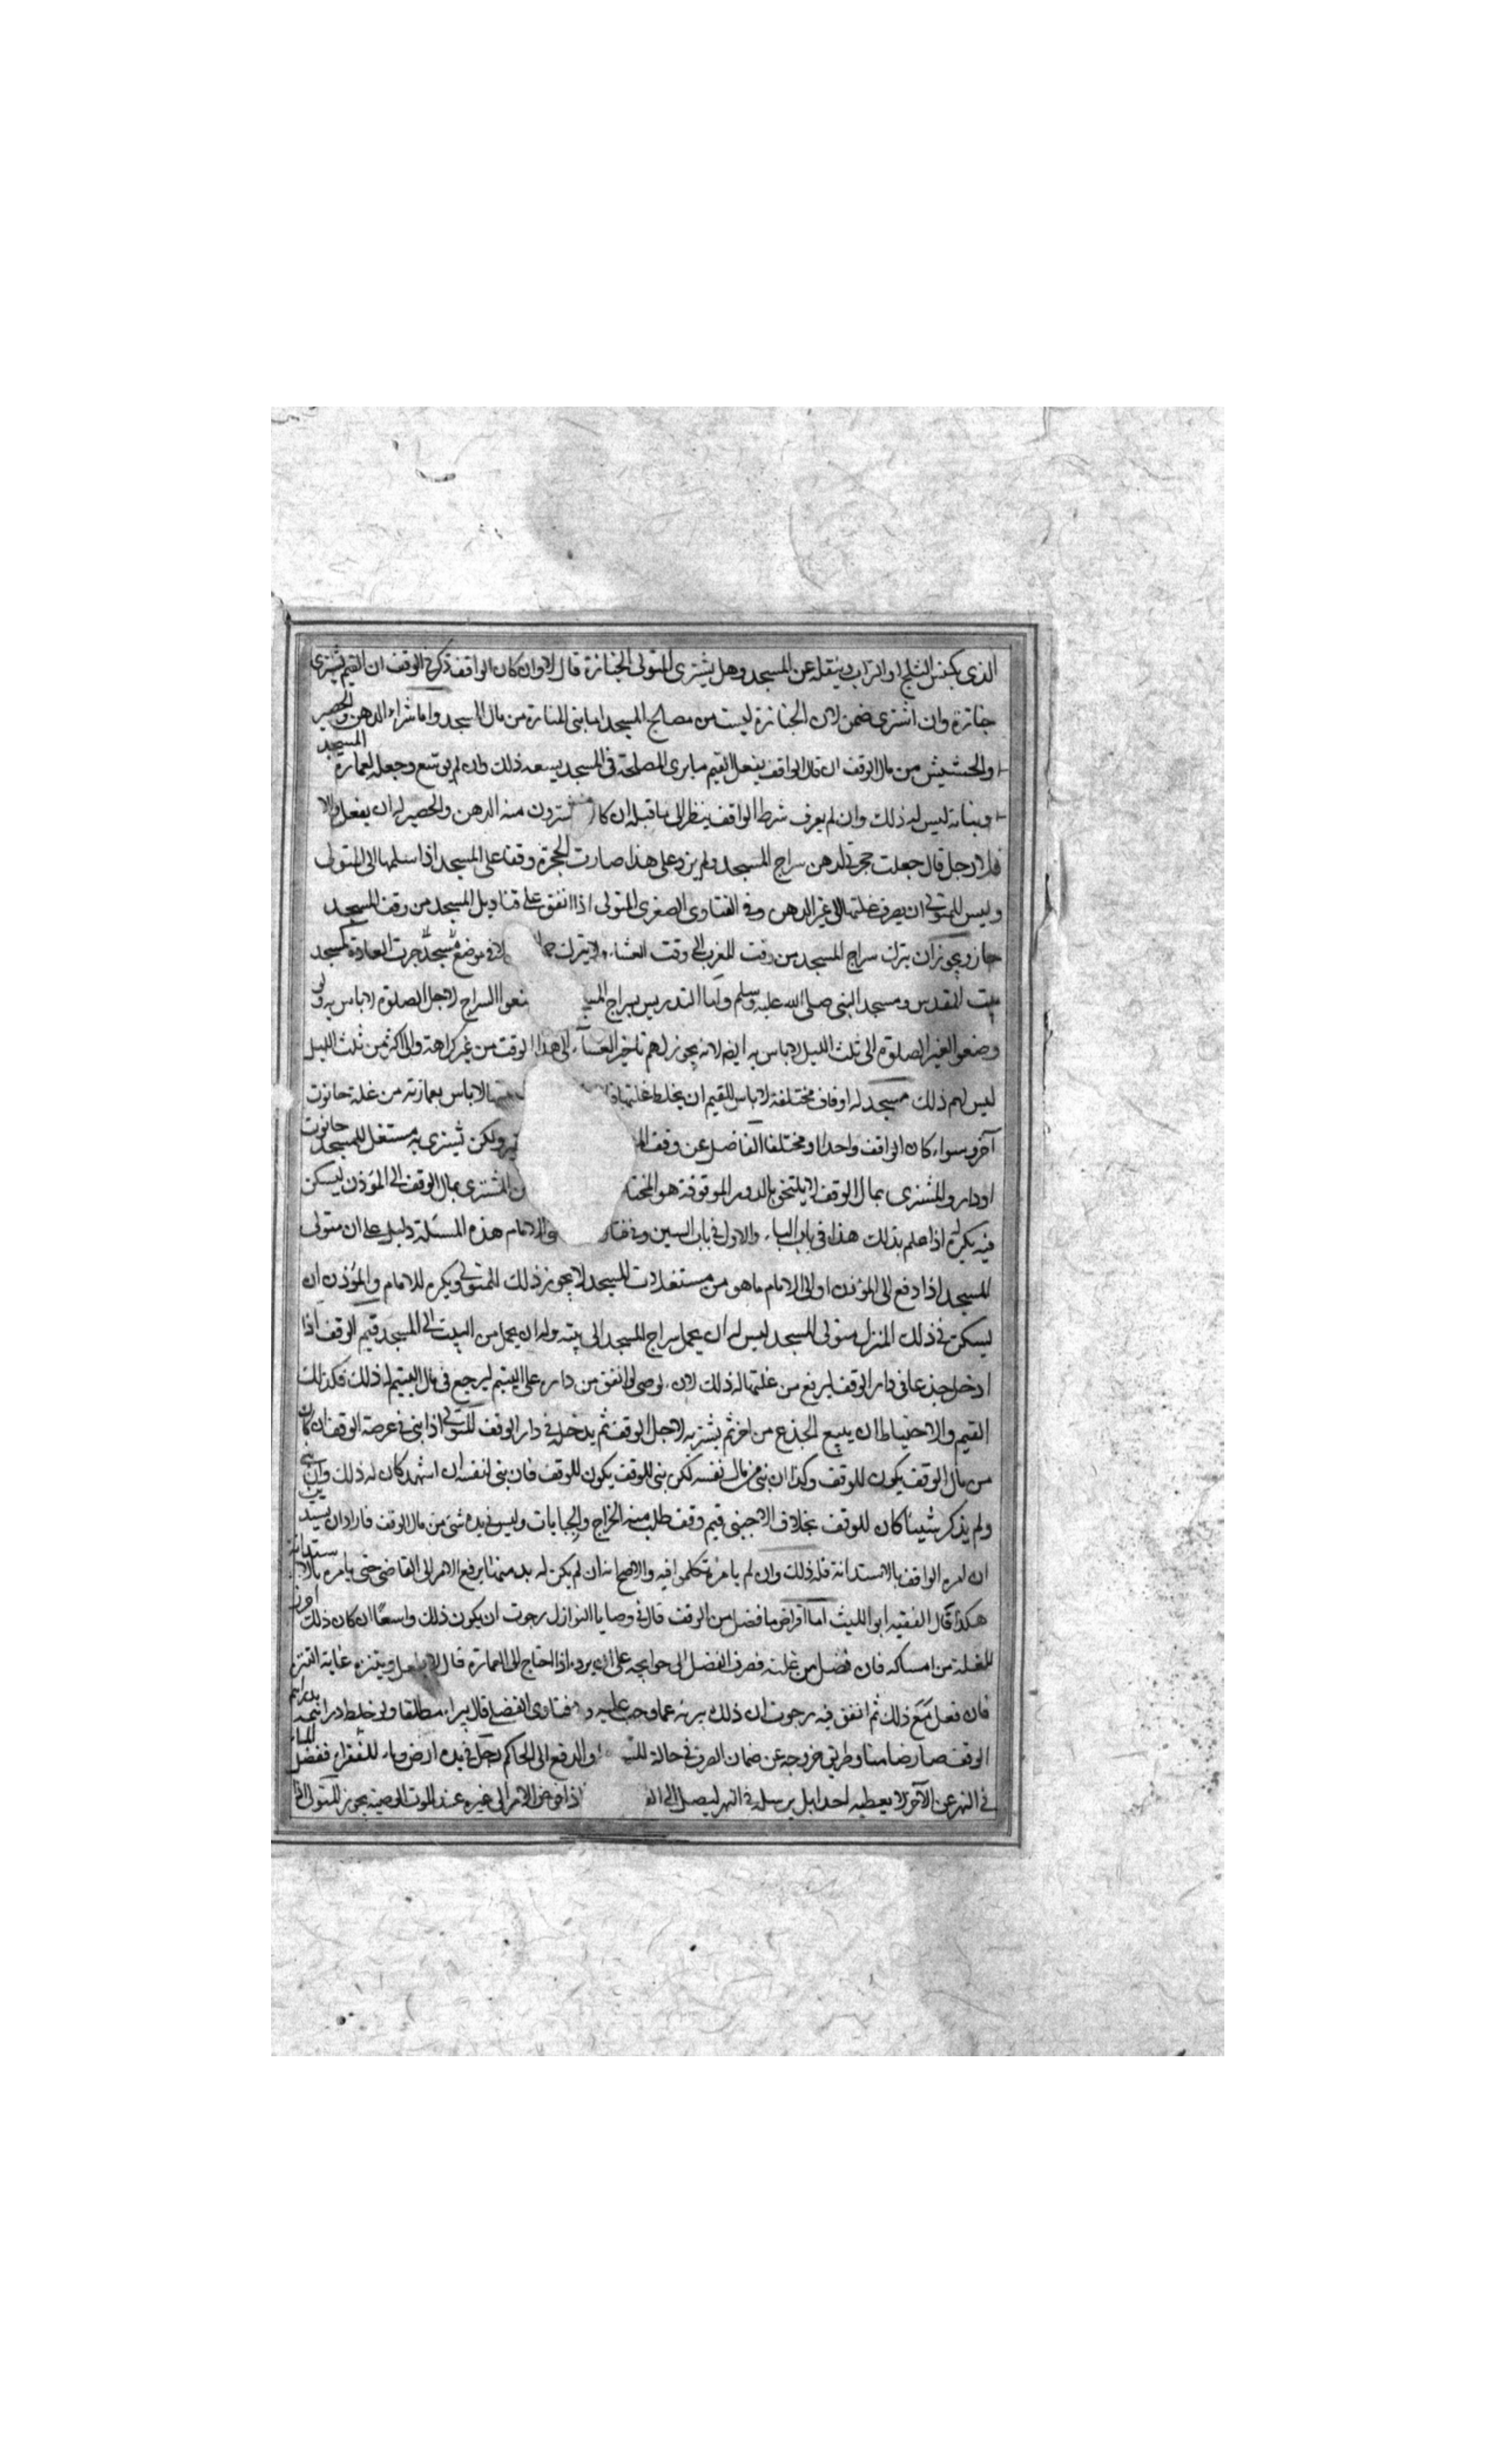 الذى يكنس الثلج او التراب وينقله عن المسجد وهل يشترى المتولى الجنازة قال لا وان كان الواقف ذكر فى الوقف ان القيم يشترى
جنازة وان اشترى ضمن لان الجنازة ليست من مصالح المسجد اما بنى المنارة من مال المسجد واما شراء الدهن والحصير
والحشيش من مال الوقف ان قال الواقف يفعل القيم ما يرى المصلحة فى المسجد يسعه ذلك وان لم يوسع وجعله لعمارة المسجد
وبنائه ليس له ذلك وان لم يعرف شرط الواقف ينظر الى ما قبله ان كا يشترون منه الدهن والحصير له ان يفعل والا
فلا رجل قال جعلت حجرتى لدهن سراج المسجد ولم يزد على هذا صارت الحجرة وقفا على المسجد اذا سلمها الى المتولى
وليس للمتولى ان يصرف غلتها الى غير الدهن وفى الفتاوى الصغرى المتولى اذا انفق على قناديل المسجد من وقف المسجد
جاز ويجوز ان يترك سراج المسجد من وقت المغرب الى وقت العشاء ولا يترك الا فى موضع جرت العادة كمسجد
بيت المقدس ومسجد النبى صلى الله عليه وسلم واما التدريس بسراج المسجد وضعوا السراج لاجل الصلوة لا باس به ولو
وضعوا لغير الصلوة الى ثلث الليل لا باس به ايضا لانه يجوز لهم تاخير العشاء الى هذا الوقت من غير كراهة والى اكثر من ثلث الليل
ليس لهم ذلك مسجد له اوقاف مختلفة لا باس للقيم ان يخلط غلتها لا باس بعمارته من غلة حانوت
آخر سواء كان الواقف واحدا او مختلفا الفاضل عن وقف ولكن يشترى به مستغل للمسجد حانوت
او دار والمشترى بمال الوقف لا يلتحق بالدور الموقوفة هو المختار المشترى بمال الوقف الى المؤذن ليسكن
فيه يكره اذا علم بذلك هذا فى باب الباء والاول فى باب السين وفى والامام هذه المسئلة دليل على ان متولى
المسجد اذا دفع الى المؤذن او الى الامام ما هو من مستغلات المسجد لا يجوز ذلك للمتولى ويكره للامام والمؤذن ان
يسكن فى ذلك المنزل متولى المسجد ليس له ان يحمل سراج المسجد الى بيته وله ان يحمل من البيت الى المسجد قيم الوقف اذا
ادخل جذعا فى دار الوقف ليرجع من غلتها له ذلك لان الوصى لو انفق من داره على اليتيم ليرجع فى مال اليتيم له ذلك فكذلك
القيم والاحتياط ان يبيع الجذع من اخر ثم يشتريه لاجل الوقف ثم يدخله فى دار الوقف المتولى اذا بنى فى عرصة الوقف ان كان
من مال الوقف يكون للوقف وكذا ان بنى من مال نفسه لكن بنى للوقف يكون للوقف فان بنى لنفسه ان اشهد كان له ذلك وان بنى
ولم يذكر شيئا كان للوقف بخلاف الاجنبى قيم وقف طلب منه الخراج والجبايات وليس فى يده شئ من مال الوقف فاراد ان يستدين
ان امره الواقف بالاستدانة فله ذلك وان لم يامره تكلموا فيه والاصح انه ان لم يكن له بد منها يرفع الامر الى القاضى حتى يامره بالاستدانة
هكذا قال الفقيه ابو الليث اما اقراض ما فضل من الوقف قال فى وصايا النوازل رجوت ان يكون ذلك واسعا ان كان ذلك احرز
للغلة من امساكه فان فضل من غلته فصرف الفضل الى حوايجه على ان يرده اذا احتاج الى العمارة قال لا يفعل ويتنزه غاية التنزه
فان فعل مع ذلك ثم انفق فيه رجوت ان ذلك يبرئه عما وجب عليه و فتاوى الفضلى قال يبرا مطلقا ولو خلط دراهمه بدراهم
الوقف صار ضامنا وطريق خروجه عن ضمان الصرف فى حالة او الدفع الى الحاكم رجل فى يده ارض وماء للفقراء ففضل الماء
فى النهر عن الآخر لا يعطيه احدا بل يرسله فى النهر ليصل الى اذا فوض الامر الى غيره عند الموت الوصية يجوز للمتولى اذا